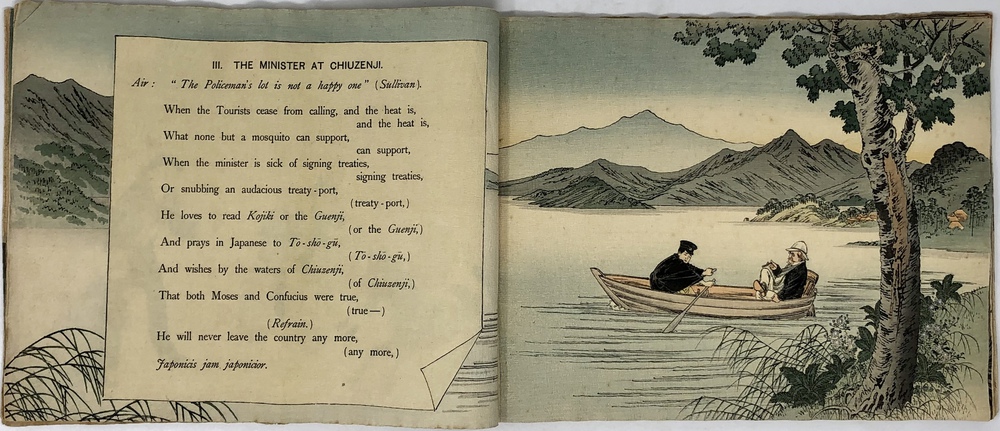 III. THE MINISTER AT CHIUZENJI.
Air: "The Policeman's lot is not a happy one" (Sullivan).
When the Tourists cease from calling, and the heat is,
and the heat is,
What none but a mosquito can support,
can support,
When the minister is sick of signing treaties,
signing treaties,
Or snubbing an audacious treaty-port,
(treaty-port,)
He loves to read Kojiki or the Guenji,
(or the Guenji,)
And prays in Japanese to Tō-shō-gū,
(Tō-shō-gū,)
And wishes by the waters of Chiuzenji,
(of Chiuzenji,)
That both Moses and Confucius were true,
(true—)
(Refrain.)
He will never leave the country any more,
(any more,)
Japonicis jam japonicior.